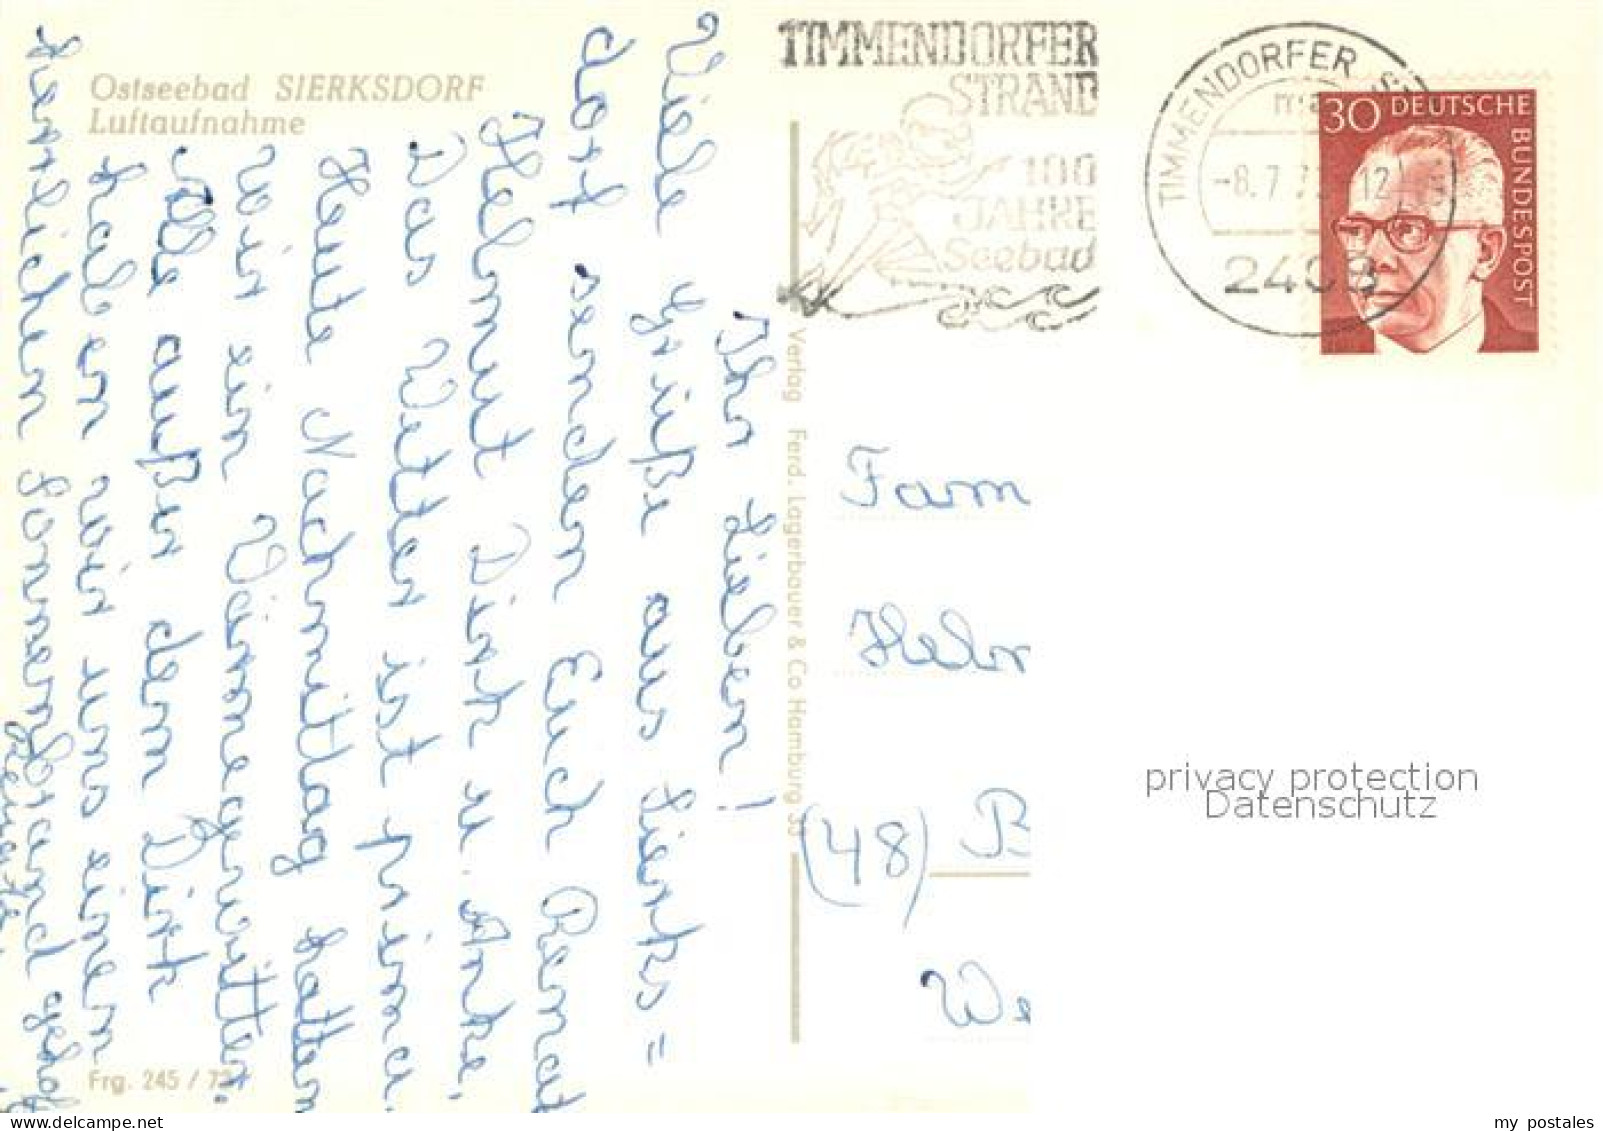 Ostseebad SIERKSDORF
Luftaufnahme
Ihr Lieben!
Viele Grüße aus Sierks=
dorf senden Euch Renate
Helmut Dirk u. Anke.
Das Wetter ist prima.
Heute Nachmittag hatten
wir ein Wärmegewitter.
Alle außer dem Dirk
haben wir uns einen
herrlichen Sonnenbrand geholt
Renate
Frg. 245 / 72
Verlag Ferd. Lagerbauer & Co Hamburg 30
TIMMENDORFER
STRAND
100
JAHRE
Seebad
TIMMENDORFER
-8.7.7
12
2408
30 DEUTSCHE
BUNDESPOST
Fam
Helm
(48) B
We
privacy protection
Datenschutz
my postales